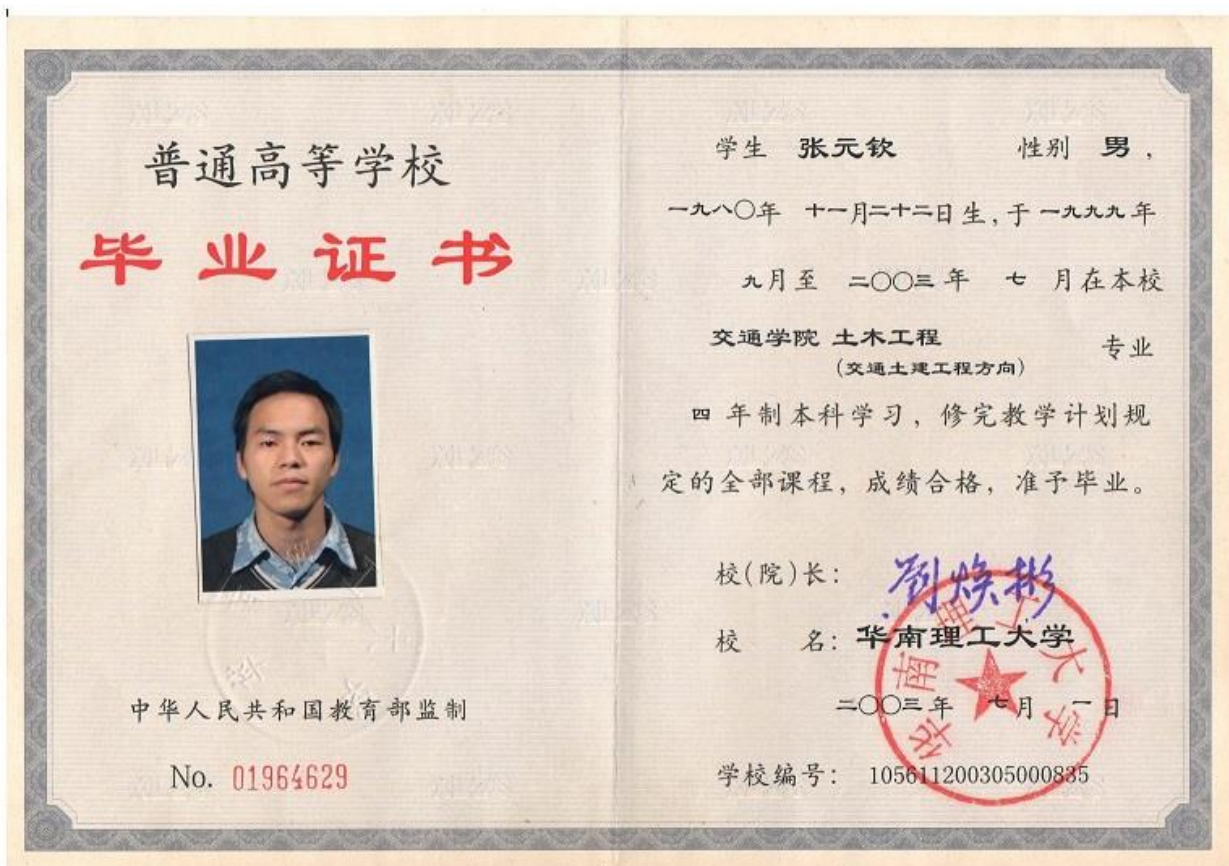 普通高等学校
毕业证书
中华人民共和国教育部监制
No. 01964629
学生 张元钦 性别 男，
一九八〇年 十一月二十二日生，于一九九九年
九月至 二〇〇三年 七 月在本校
交通学院 土木工程 专业
(交通土建工程方向)
四 年制本科学习，修完教学计划规
定的全部课程，成绩合格，准予毕业。
校(院)长： 刘焕彬
校 名：华南理工大学
华南理工大学
二〇〇三年 七月 一日
学校编号： 105611200305000835